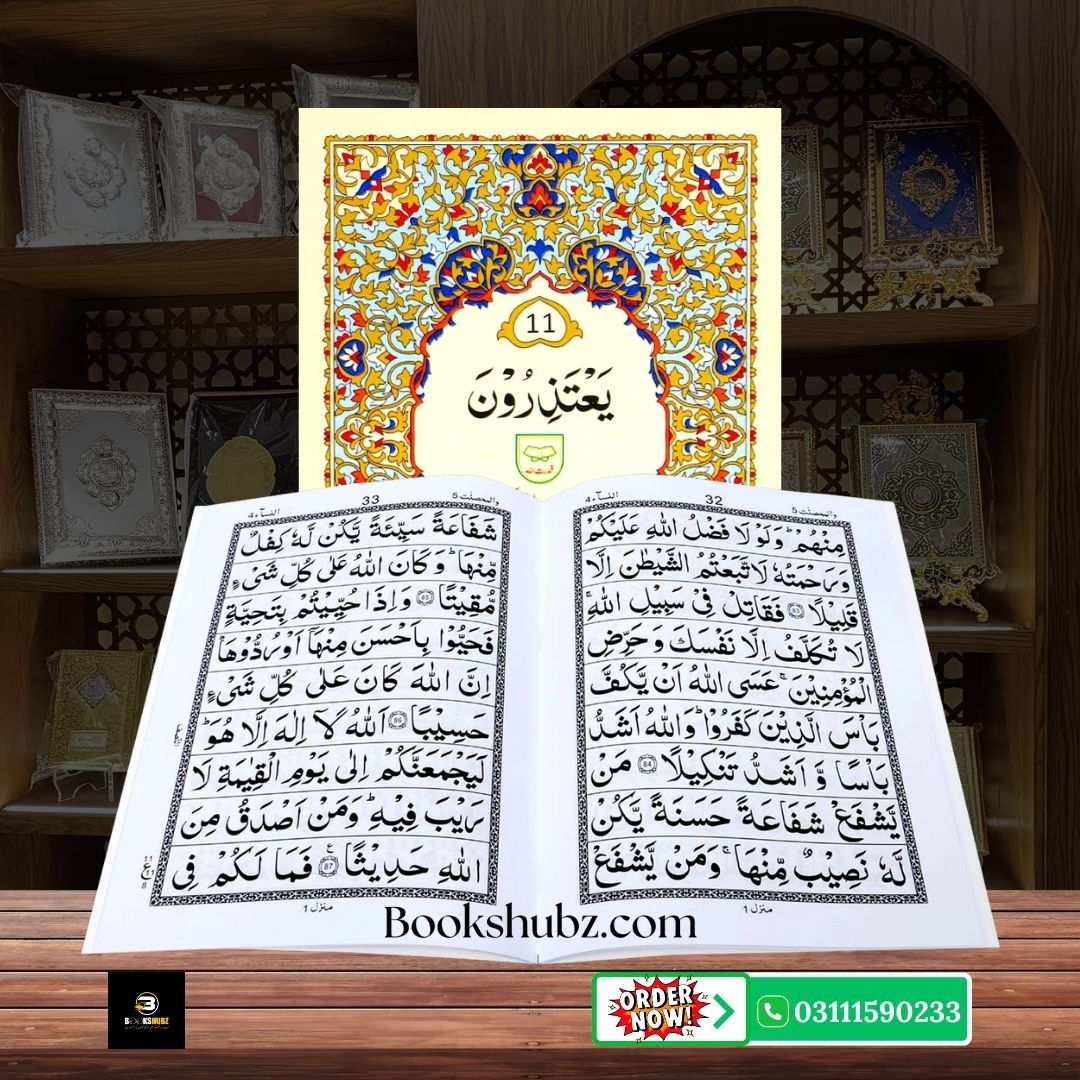 11
يَعْتَذِرُوْنَ
قدرت الله
والمحصنٰت 5
32
النسآء 4
مِنْهُمْ ؕ وَلَوْ لَا فَضْلُ اللّٰهِ عَلَيْكُمْ
وَرَحْمَتُهٗ لَا تَّبَعْتُمُ الشَّيْطٰنَ اِلَّا
قَلِيْلًا ﴿83﴾ فَقَاتِلْ فِيْ سَبِيْلِ اللّٰهِ ۚ
لَا تُكَلَّفُ اِلَّا نَفْسَكَ وَ حَرِّضِ
الْمُؤْمِنِيْنَ ۚ عَسَى اللّٰهُ اَنْ يَّكُفَّ
بَاْسَ الَّذِيْنَ كَفَرُوْا ؕ وَاللّٰهُ اَشَدُّ
بَاْسًا وَّ اَشَدُّ تَنْكِيْلًا ﴿84﴾ مَنْ
يَّشْفَعْ شَفَاعَةً حَسَنَةً يَّكُنْ
لَّهٗ نَصِيْبٌ مِّنْهَا ۚ وَمَنْ يَّشْفَعْ
منزل 1
والمحصنٰت 5
33
النسآء 4
شَفَاعَةً سَيِّئَةً يَّكُنْ لَّهٗ كِفْلٌ
مِّنْهَا ؕ وَ كَانَ اللّٰهُ عَلٰى كُلِّ شَيْءٍ
مُّقِيْتًا ﴿85﴾ وَاِذَا حُيِّيْتُمْ بِتَحِيَّةٍ
فَحَيُّوْا بِاَحْسَنَ مِنْهَاۤ اَوْ رُدُّوْهَا ؕ
اِنَّ اللّٰهَ كَانَ عَلٰى كُلِّ شَيْءٍ
حَسِيْبًا ﴿86﴾ اَللّٰهُ لَاۤ اِلٰهَ اِلَّا هُوَ ؕ
لَيَجْمَعَنَّكُمْ اِلٰى يَوْمِ الْقِيٰمَةِ لَا
رَيْبَ فِيْهِ ؕ وَمَنْ اَصْدَقُ مِنَ
اللّٰهِ حَدِيْثًا ﴿87﴾ فَمَا لَكُمْ فِي
11
ع
11
8
منزل 1
Bookshubz.com
BOOKSHUBZ
ORDER
NOW!
03111590233